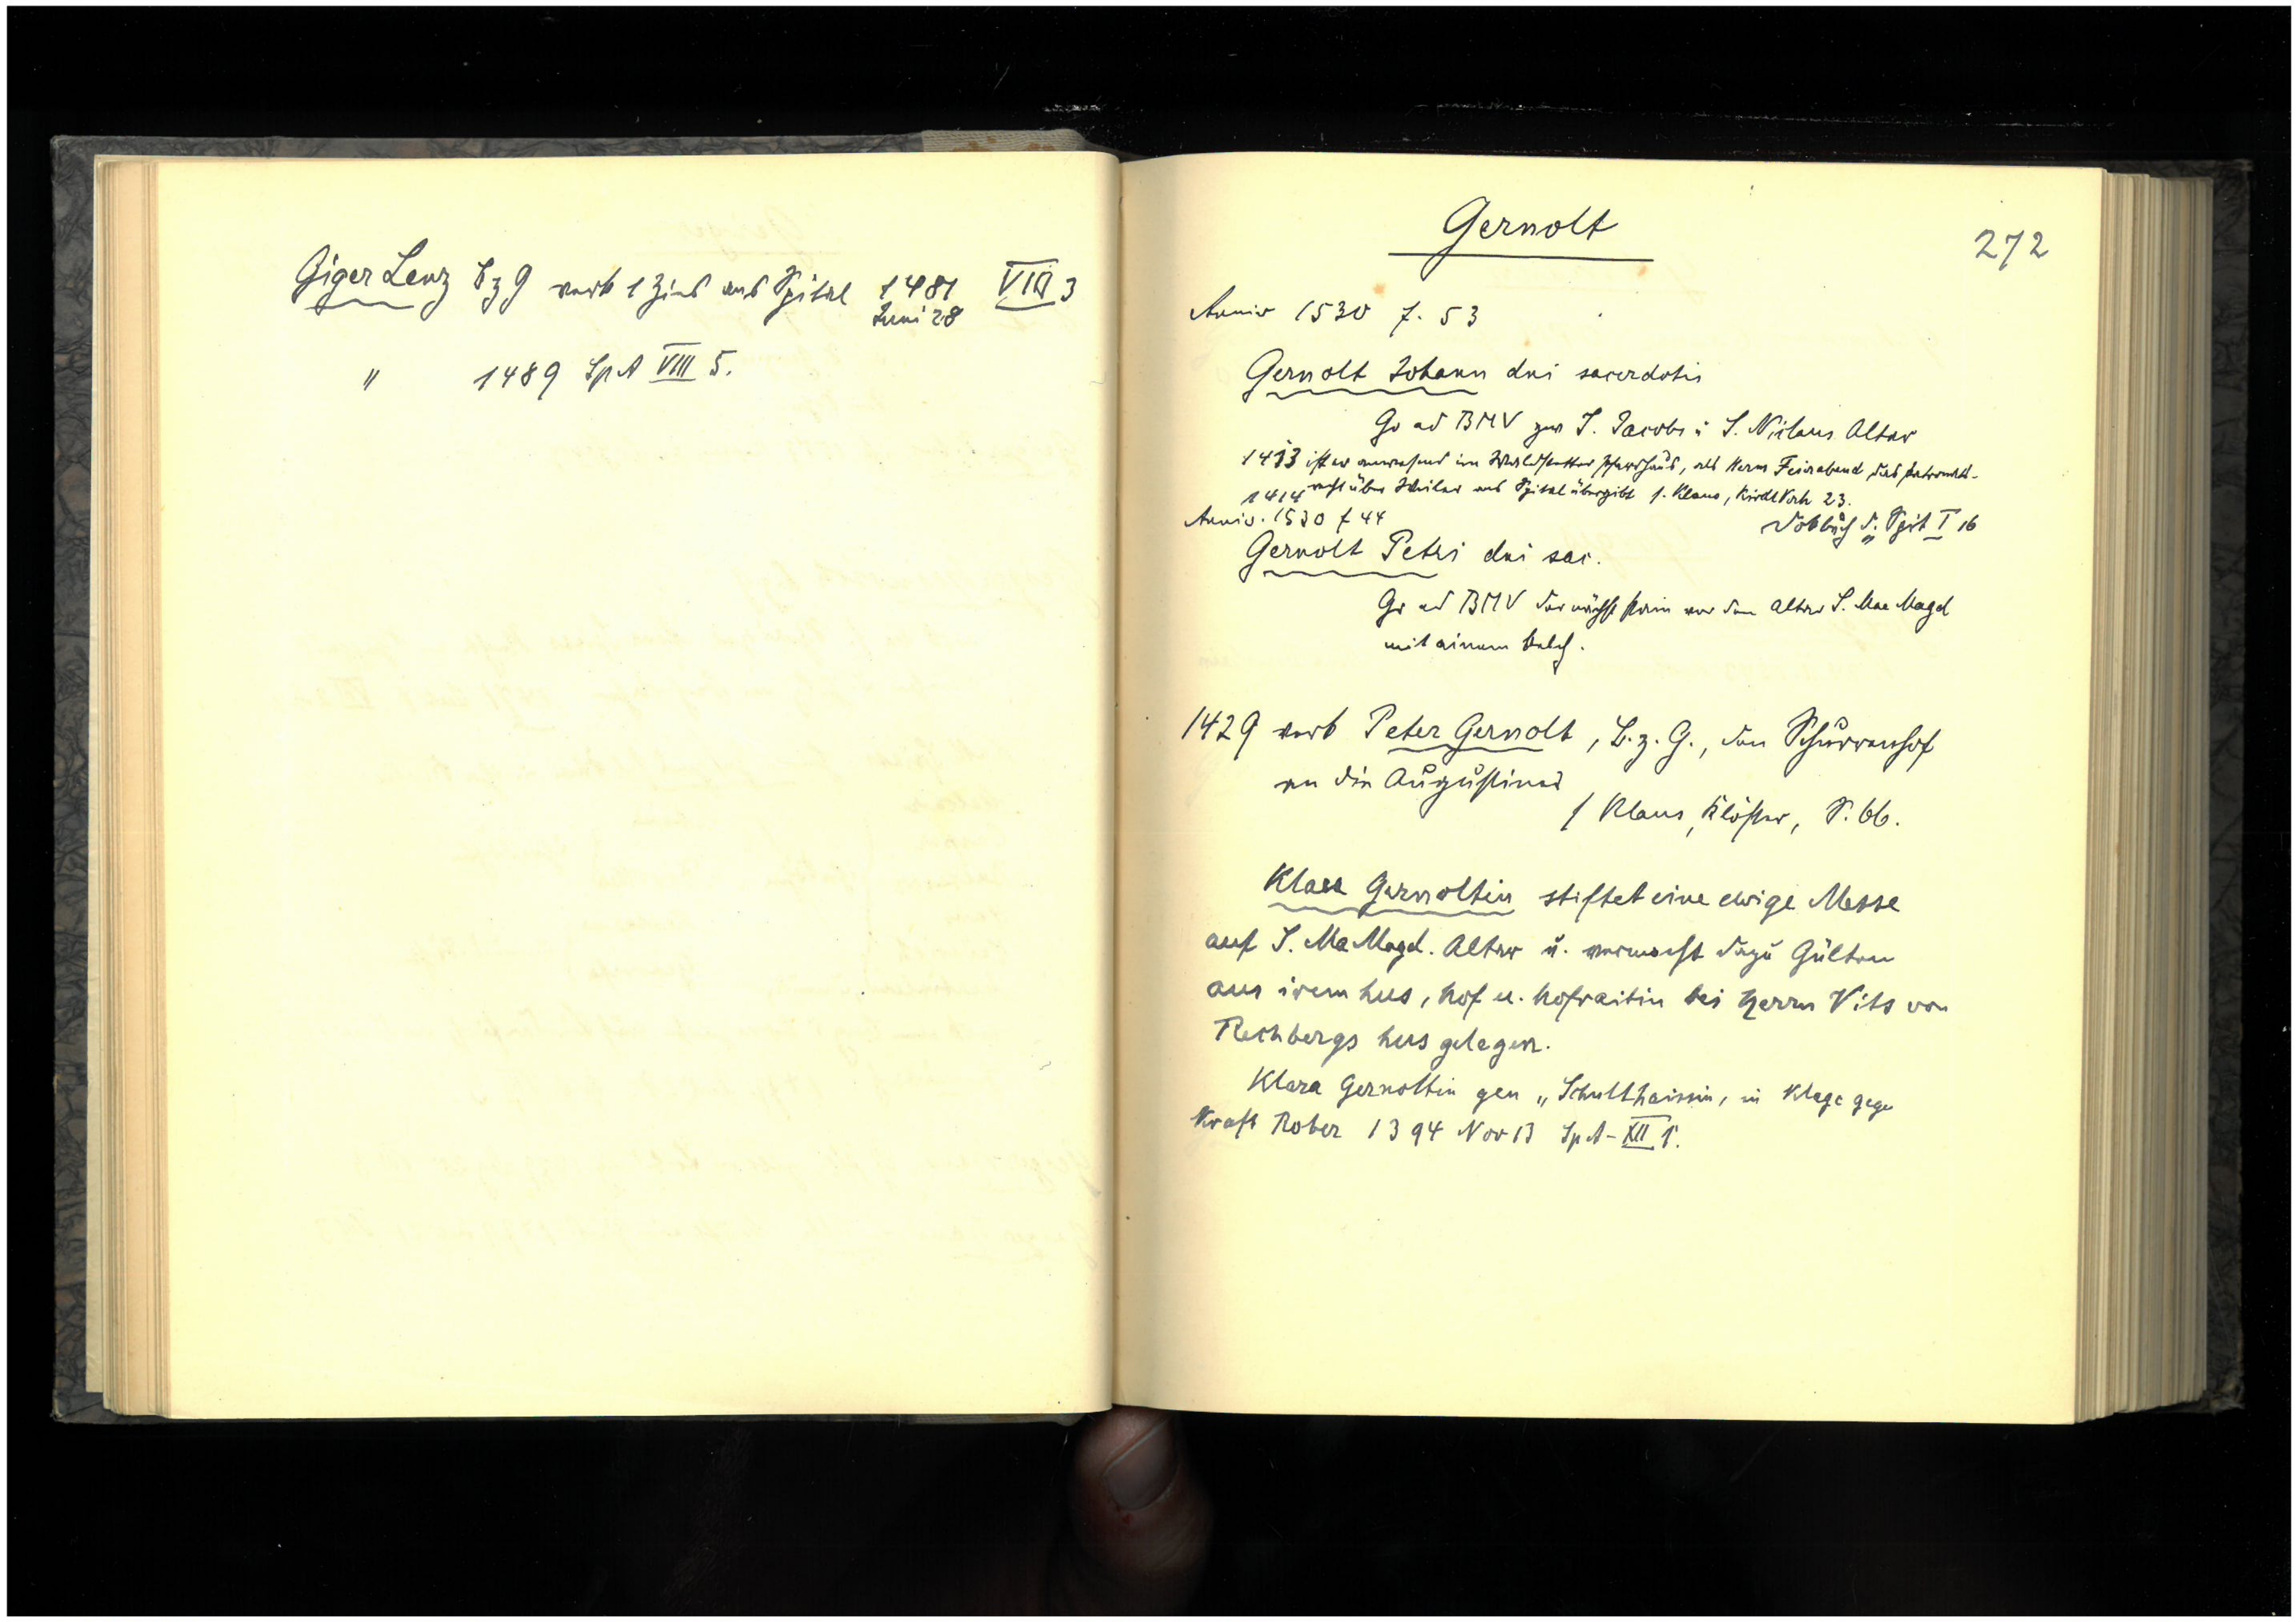 Giger Lenz Bz G verk 1 Zins ans Spital 1481 VIII 3
Juni 28
" 1489 SpA VIII 5.
Gernolt
272
Anniv 1530 f. 53
Gernolt Johann dni sacerdotis
Go ad BMV zur S. Jacobs u S. Niclaus Altar
1413 ist er anwesend im Waldstetter Pfarrhaus, als Herm Feirabend das Patronats-
1414 recht über Weiler ans Spital übergibt s. Klaus, Kirchl Verh 23.
Dobbuch d. Spit I 16
Anniv. 1530 f 44
Gernolt Petri dni sac.
Gr ad BMV der nächst stain vor dem Altar S. Mae Magd
mit einem kelch.
1429 verk Peter Gernolt, B. z. G., den Schurrenhof
an die Augustiner
s Klaus, Klöster, S. 66.
Klara Gernoltin stiftet eine ewige Messe
auf S. Ma Magd. Altar u. vermacht dazu Gülten
aus irem hus, hof u. hofraitin bei Herrn Vits von
Rechbergs hus gelegen.
Klara Gernoltin gen „Schulthaissin, in Klage gege
Kraft Rober 1394 Nov 13 SpA-XII 1.